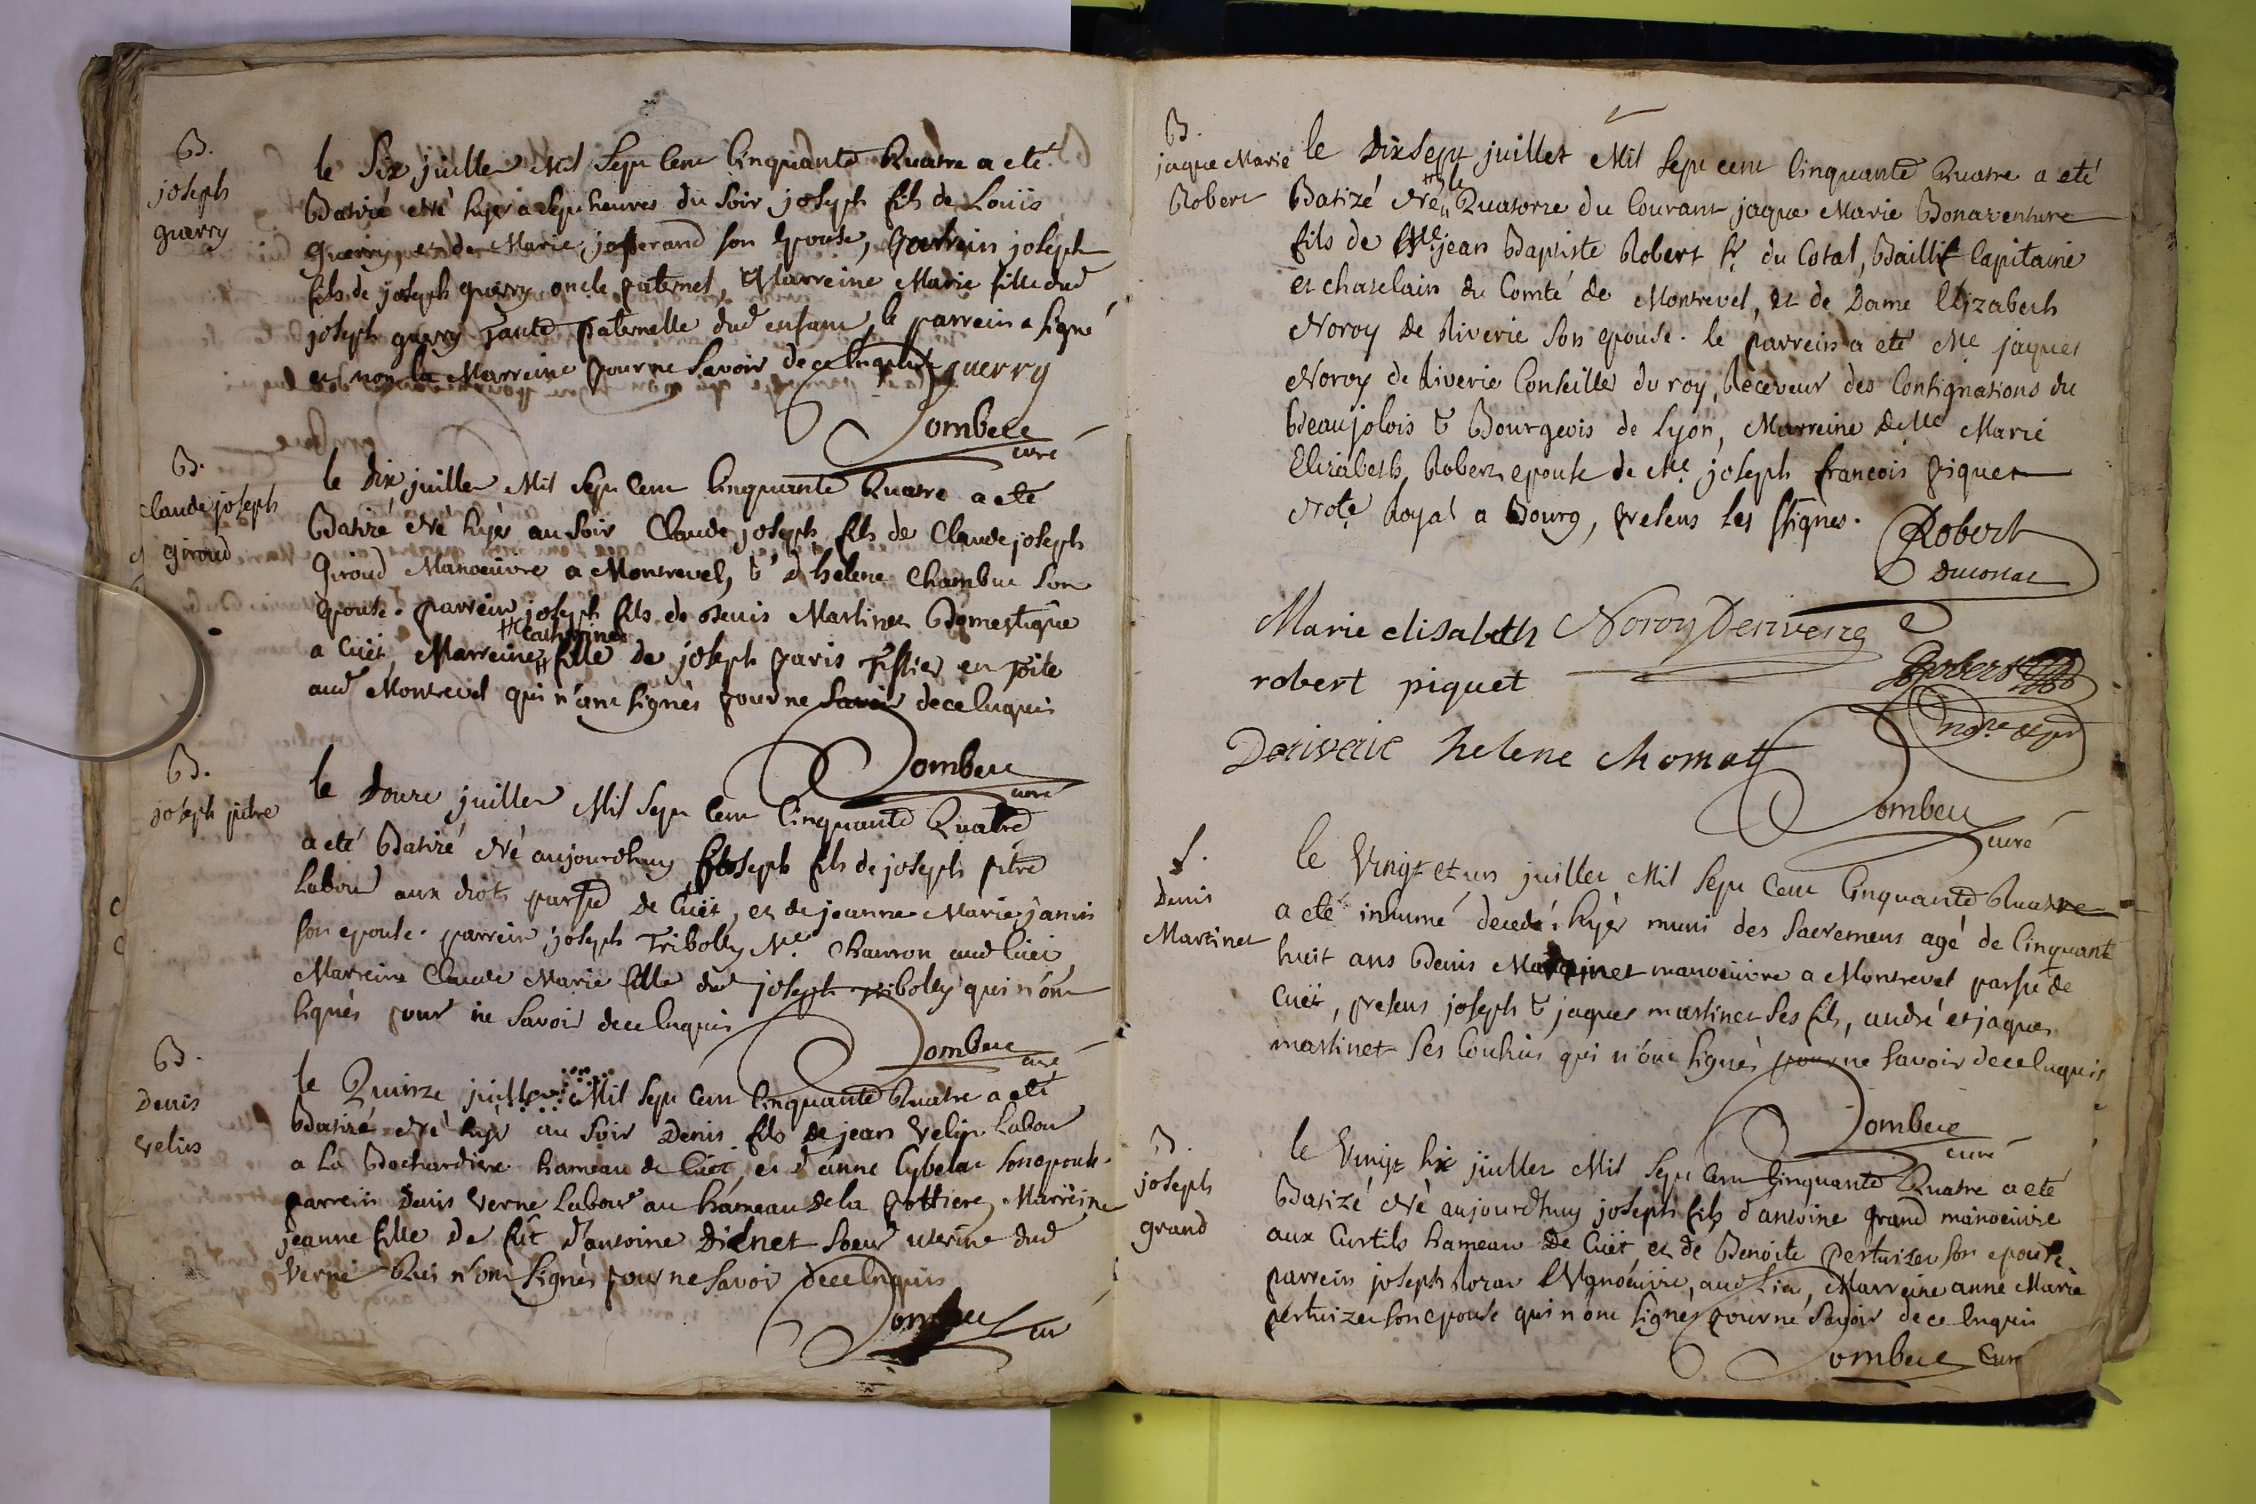 B.
joseph
guerry
le Six juillet Mil Sept Cent Cinquante Quatre a eté
Batizé Né hyer a Sept heures du Soir joseph fils de Loüis
guerry, et de Marie josserand son Epouse, parrein joseph
fils de joseph guerry oncle paternel, Marreine Marie fille dud
joseph guerry Tante paternelle dud enfant, le parrein a signé
et non la Marreine pour ne Savoir de ce Enquis guerry
Lombere
curé
B.
Claude joseph
giroud
le dix juillet Mil Sept Cent Cinquante Quatre a eté
Batizé Né hyer au Soir Claude joseph fils de Claude joseph
Giroud Manoeüvre a Montrevel, & d'helene Chambut Son
Epouse. parrein joseph fils de Denis Martinet Domestique
a Cüet, Marreine # fille de joseph paris Tissier en Toile
# Catherine
aud Montrevel qui n'ont Signés pour ne Savoir de ce Enquis
Lombere
curé
B.
joseph pitre
le Douze juillet Mil Sept Cent Cinquante Quatre
a eté Batizé Né aujourdhuy joseph fils de joseph pitre
Labour aux diots parsse de Cüet, et de jeanne Marie janin
son epouse. parrein joseph Tribolley Me. Charron aud Cüet
Marreine Claude Marie fille dud joseph Tribolley qui n'ont
signés pour ne Savoir de ce Enquis
Lombere
curé
B.
Denis
velin
le Quinze juillet Mil Sept Cent Cinquante Quatre a eté
Batizé Né hyer au Soir Denis fils de jean Velin Labour
a La Bochardiere hameau de Cüet, et d'anne Cybelar son epouse.
parrein Denis Verne Labour au hameau de la pottiere, Marreine
jeanne fille de fût d'antoine Diénet Soeur uterine dud
Verne Qui n'ont Signés pour ne Savoir de ce Enquis
Lombere
curé
B.
jaque Marie
Robert
le Dix Sept juillet Mil Sept cent Cinquante Quatre a eté
Batizé Né # Quatorze du Courant jaque Marie Bonaventure
# le
fils de Me. jean Baptiste Robert Sr. du Cotal, Baillif Capitaine
et chatelain du Comté de Montrevel, et de Dame Elizabeth
Noroy De Riverie Son epouse. le parrein a eté Me jaques
Noroy de Riverie Conseiller du roy, Receveur des Consignations du
Beaujolois & Bourgeois de Lyon, Marreine Delle Marie
Elizabeth Robert epouse de Me. joseph francois piquet
Note Royal a Bourg, presens Les Ssignés.
Robert
Ducotal
Marie elisabeth Noroy Deriverie
robert piquet
Robert
Deriverie helene Chomat
Lombere
curé
S.
Denis
Martinet
le Vingt et un juillet Mil Sept Cent Cinquante Quatre
a eté inhumé decedé hyer muni des Sacremens agé de Cinquant
huit ans Denis Martinet manoeüvre a Montrevel parsse de
Cüet, presens joseph & jaques martinet Ses fils, andré et jaques
martinet Ses Cousins qui n'ont signés pour ne Savoir de ce Enquis
Lombere
curé
B.
joseph
grand
le Vingt Six juillet Mil Sept Cent Cinquante Quatre a eté
Batizé Né aujourdhuy joseph fils d'antoine grand manoeüvre
aux Curtils hameau De Cüet et de Benoite pertuizet son epouse.
parrein joseph Morar Mgnoeuvre, aud Lieu, Marreine anne Marie
pertuizet son epouse qui n'ont signés pour ne Savoir de ce Enquis
Lombere Curé